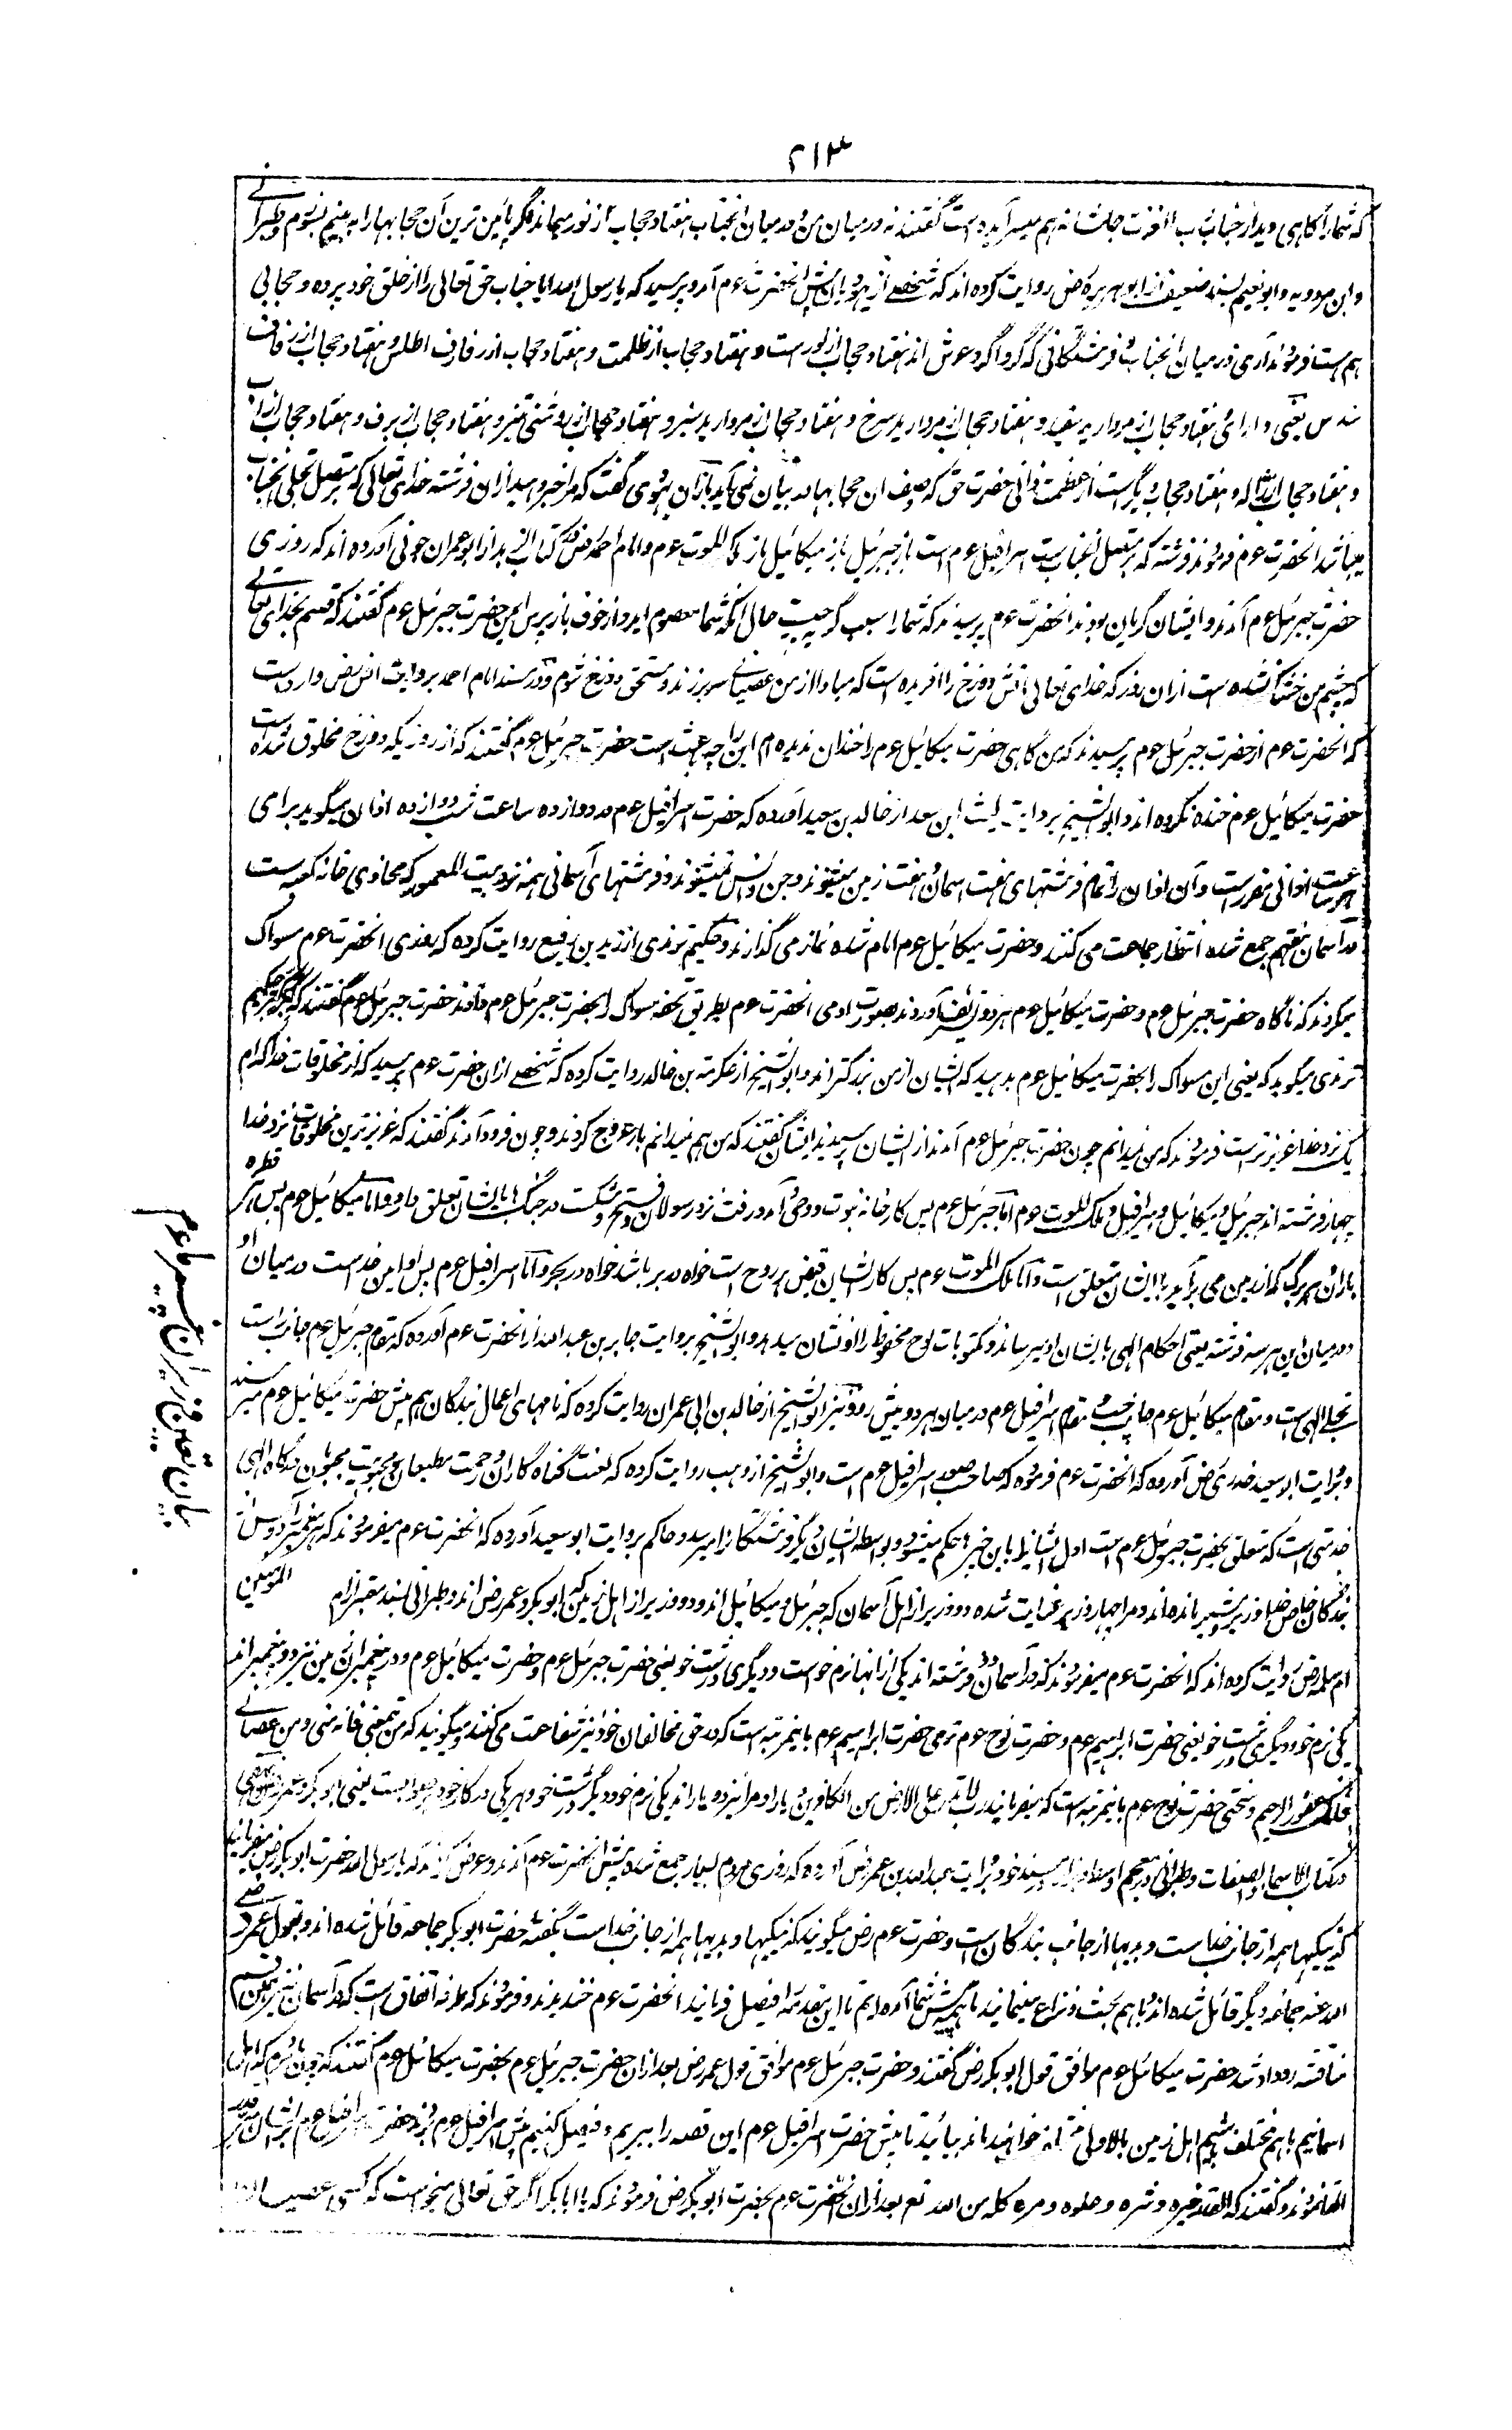 ۲۱۳
که شمارا گاهی دیدار جناب رب العزت جلت شانه هم میسر آمده است گفتند نه در میان من و در میان آنجناب هفتاد حجاب از نور میماند اگر پائین ترین آن حجابها را به بینم بسوزم و طبرانی
و ابن مردویه و ابونعیم بسند ضعیف از ابوهریره رض روایت کرده اند که شخصی از یهودیان پیش آنحضرت عوم آمد و پرسید که یا رسول الله ایا جناب حق تعالی را از خلق خود پرده و حجابی
هم هست فرمودند آری در میان آنجناب و فرشتگانی که گرداگرد عرش اند هفتاد حجاب از نور است و هفتاد حجاب از ظلمت و هفتاد حجاب از رفارف اطلس و هفتاد حجاب از رفارف
سندس یعنی دارائی و هفتاد حجاب از مروارید سفید و هفتاد حجاب از مروارید سرخ و هفتاد حجاب از مروارید سبز و هفتاد حجاب از روشنی تیز و هفتاد حجاب از برف و هفتاد حجاب از آب
و هفتاد حجاب از ژاله و هفتاد حجاب دیگر است از عظمت ذاتی حضرت حق که وصف ان حجابها در بیان نمی آید باز آن یهودی گفت که مرا خبر دهید ازان فرشته خدای تعالی که متصل تجلی آنجناب
میباشد آنحضرت عوم فرمودند فرشته که متصل آنجناب است اسرافیل عوم است باز جبرئیل باز میکائیل باز ملک الموت عوم و امام احمد رض در کتاب الزهد از ابوعمران جونی آورده اند که روزی
حضرت جبرئیل عوم آمدند و ایشان گریان بودند آنحضرت عوم پرسیدند که شما را سبب گریه چیست حال آنکه شما معصوم اید و از خوف باز پرس ایمن حضرت جبرئیل عوم گفتند که قسم بخدای تعالی
که چشم من خشک نشده است ازان روز که خدای تعالی آتش دوزخ را آفریده است که مبادا از من عصیانی سر بزند و مستحق دوزخ شوم و در مسند امام احمد بروایت انس رض وارد است
که آنحضرت عوم از حضرت جبرئیل عوم پرسیدند که من گاهی حضرت میکائیل عوم را خندان ندیده ام این را چه باعث است حضرت جبرئیل عوم گفتند که از روزیکه دوزخ مخلوق شده است
حضرت میکائیل عوم خنده نکرده اند و ابوالشیخ بروایت لیث ابن سعد از خالد بن سعید آورده که حضرت اسرافیل عوم در دوازده ساعت شب دوازده اذان میگوید برای
هر ساعت اذانی مقرر است و آن اذان را تمام فرشتهای هفت اسمان و هفت زمین میشنوند و جن و انس نمیشنوند و فرشتهای آسمانی همه نزد بیت المعمور که محاذی خانه کعبه است
در آسمان هفتم جمع شده انتظار جماعت می کنند و حضرت میکائیل عوم امام شده نماز می گذارند و حکیم ترمذی از زید بن رفیع روایت کرده که روزی آنحضرت عوم مسواک
میکردند که ناگاه حضرت جبرئیل عوم و حضرت میکائیل عوم هر دو تشریف آوردند بصورت ادمی آنحضرت عوم بطریق تحفه مسواک را بحضرت جبرئیل عوم دادند حضرت جبرئیل عوم گفتند که کبر کبر حکیم
ترمذی میگوید که یعنی این مسواک را بحضرت میکائیل عوم بدهید که ایشان از من بزرگتر اند و ابوالشیخ از عکرمه بن خالد روایت کرده که شخصی ازان حضرت عوم پرسید که از مخلوقات خدا کدام
یک نزد خدا عزیز تر است فرمودند که من نمیدانم چون حضرت جبرئیل عوم آمدند از ایشان پرسیدند ایشان گفتند که من هم نمیدانم باز عروج کردند و چون فرود آمدند گفتند که عزیز ترین مخلوقات نزد خدا
چهار فرشته اند جبرئیل و میکائیل و اسرافیل و ملک الموت عوم اما جبرئیل عوم پس کارخانه نبوت و وحی و آمد و رفت نزد رسولان و فتح و شکست در جنگ با ایشان تعلق دارد و اما میکائیل عوم پس هر قطره
باران و هر برگ که از زمین می برآید با ایشان متعلق است و اما ملک الموت عوم پس کار ایشان قبض هر روح است خواه در بر باشد خواه در بحر و اما اسرافیل عوم پس او امین خداست در میان او
و در میان این هر سه فرشته یعنی احکام الهی با ایشان او میرساند و مکتوبات لوح محفوظ را او نشان میدهد و ابوالشیخ بروایت جابر بن عبدالله از آنحضرت عوم آورده که مقام جبرئیل عوم جانب راست
تجلی الهی است و مقام میکائیل عوم جانب چپ و مقام اسرافیل عوم در میان هر دو پیش رو و نیز ابوالشیخ از خالد بن ابی عمران روایت کرده که نامهای اعمال بندگان هم پیش حضرت میکائیل عوم میرسند
و بروایت ابوسعید خدری رض آورده که آنحضرت عوم فرموده که صاحب صور اسرافیل عوم است و ابوالشیخ از وهب روایت کرده که لعنت گناه گاران و رحمت مطیعان و محبوبیت محبوبان درگاه الهی
خدمتی است که متعلق بحضرت جبرئیل عوم است اول ایشان را باین خبرها حکم میشود و بواسطه ایشان دیگر فرشتگان را میرسد و حاکم بروایت ابوسعید آورده که آنحضرت عوم میفرمودند که هر پیغمبر را دو کس از
بندگان خاص خدا وزیر و مشیر مانده اند و مرا چهار وزیر عنایت شده دو وزیر از اهل آسمان که جبرئیل و میکائیل اند و دو وزیر از اهل زمین که ابوبکر و عمر رض اند و طبرانی بسند معتبر از ام المومنین
ام سلمه رض روایت کرده اند که آنحضرت عوم میفرمودند که در آسمان دو فرشته اند یکی از انها نرم خوست و دیگری درشت خو یعنی حضرت جبرئیل عوم و حضرت میکائیل عوم و در پیغمبران پیشین نیز دو پیغمبر اند
یکی نرم خو و دیگری درشت خو یعنی حضرت ابراهیم عوم و حضرت نوح عوم نرمی حضرت ابراهیم عوم باینمرتبه است که در حق مخالفان خود نیز شفاعت می کنند و میگویند که من تبعنی فانه منی و من عصانی
فانک غفور الرحیم و سختی حضرت نوح عوم باینمرتبه است که میفرمایند رب لاتذر علی الارض من الکافرین دیارا و مرا نیز دو یار اند یکی نرم خو و دیگر درشت خو و هر یکی در کار خود بصواب است یعنی ابوبکر و عمر رض و بیهقی
در کتاب الاسما و الصفات و طبرانی در معجم اوسط و بزار در مسند خود بروایت عبدالله بن عمر رض آورده که روزی مردم بسیار جمع شده پیش آنحضرت عوم آمدند و عرض کردند که یا رسول الله حضرت ابوبکر رض میفرمایند
که نیکیها همه از جانب خداست و بدیها از جانب بندگان است و حضرت عمر رض میگویند که نیکیها و بدیها همه از جانب خداست بگفته حضرت ابوبکر جماعه قائل شده اند و بقول عمر رضی
الله عنه جماعه دیگر قائل شده اند و باهم بحث و نزاع مینمایند ما همه پیش شما آمده ایم تا این مقدمه را فیصل فرمائید آنحضرت عوم خندیدند و فرمودند که طرفه اتفاق است که در آسمان نیز همین قسم
مناقشه رو داد شد حضرت میکائیل عوم موافق قول ابوبکر رض گفتند و حضرت جبرئیل عوم موافق قول عمر رض بعد ازان حضرت جبرئیل عوم بحضرت میکائیل عوم گفتند که چون ما مردم که اهل
اسمانیم باهم مختلف شدیم اهل زمین بالاولی مختلف خواهند ماند بیائید تا پیش حضرت اسرافیل عوم این قصه را ببریم و فیصل کنیم پیش اسرافیل عوم بردند حضرت اسرافیل عوم بر ایشان
القا نمودند و گفتند که القدر خیره و شره و حلوه و مره کله من الله تع بعد ازان آنحضرت عوم بحضرت ابوبکر رض فرمودند که یا ابابکر اگر حق تعالی میخواست که کسی
بیان تعیین وزیران پیغمبر ما عوم